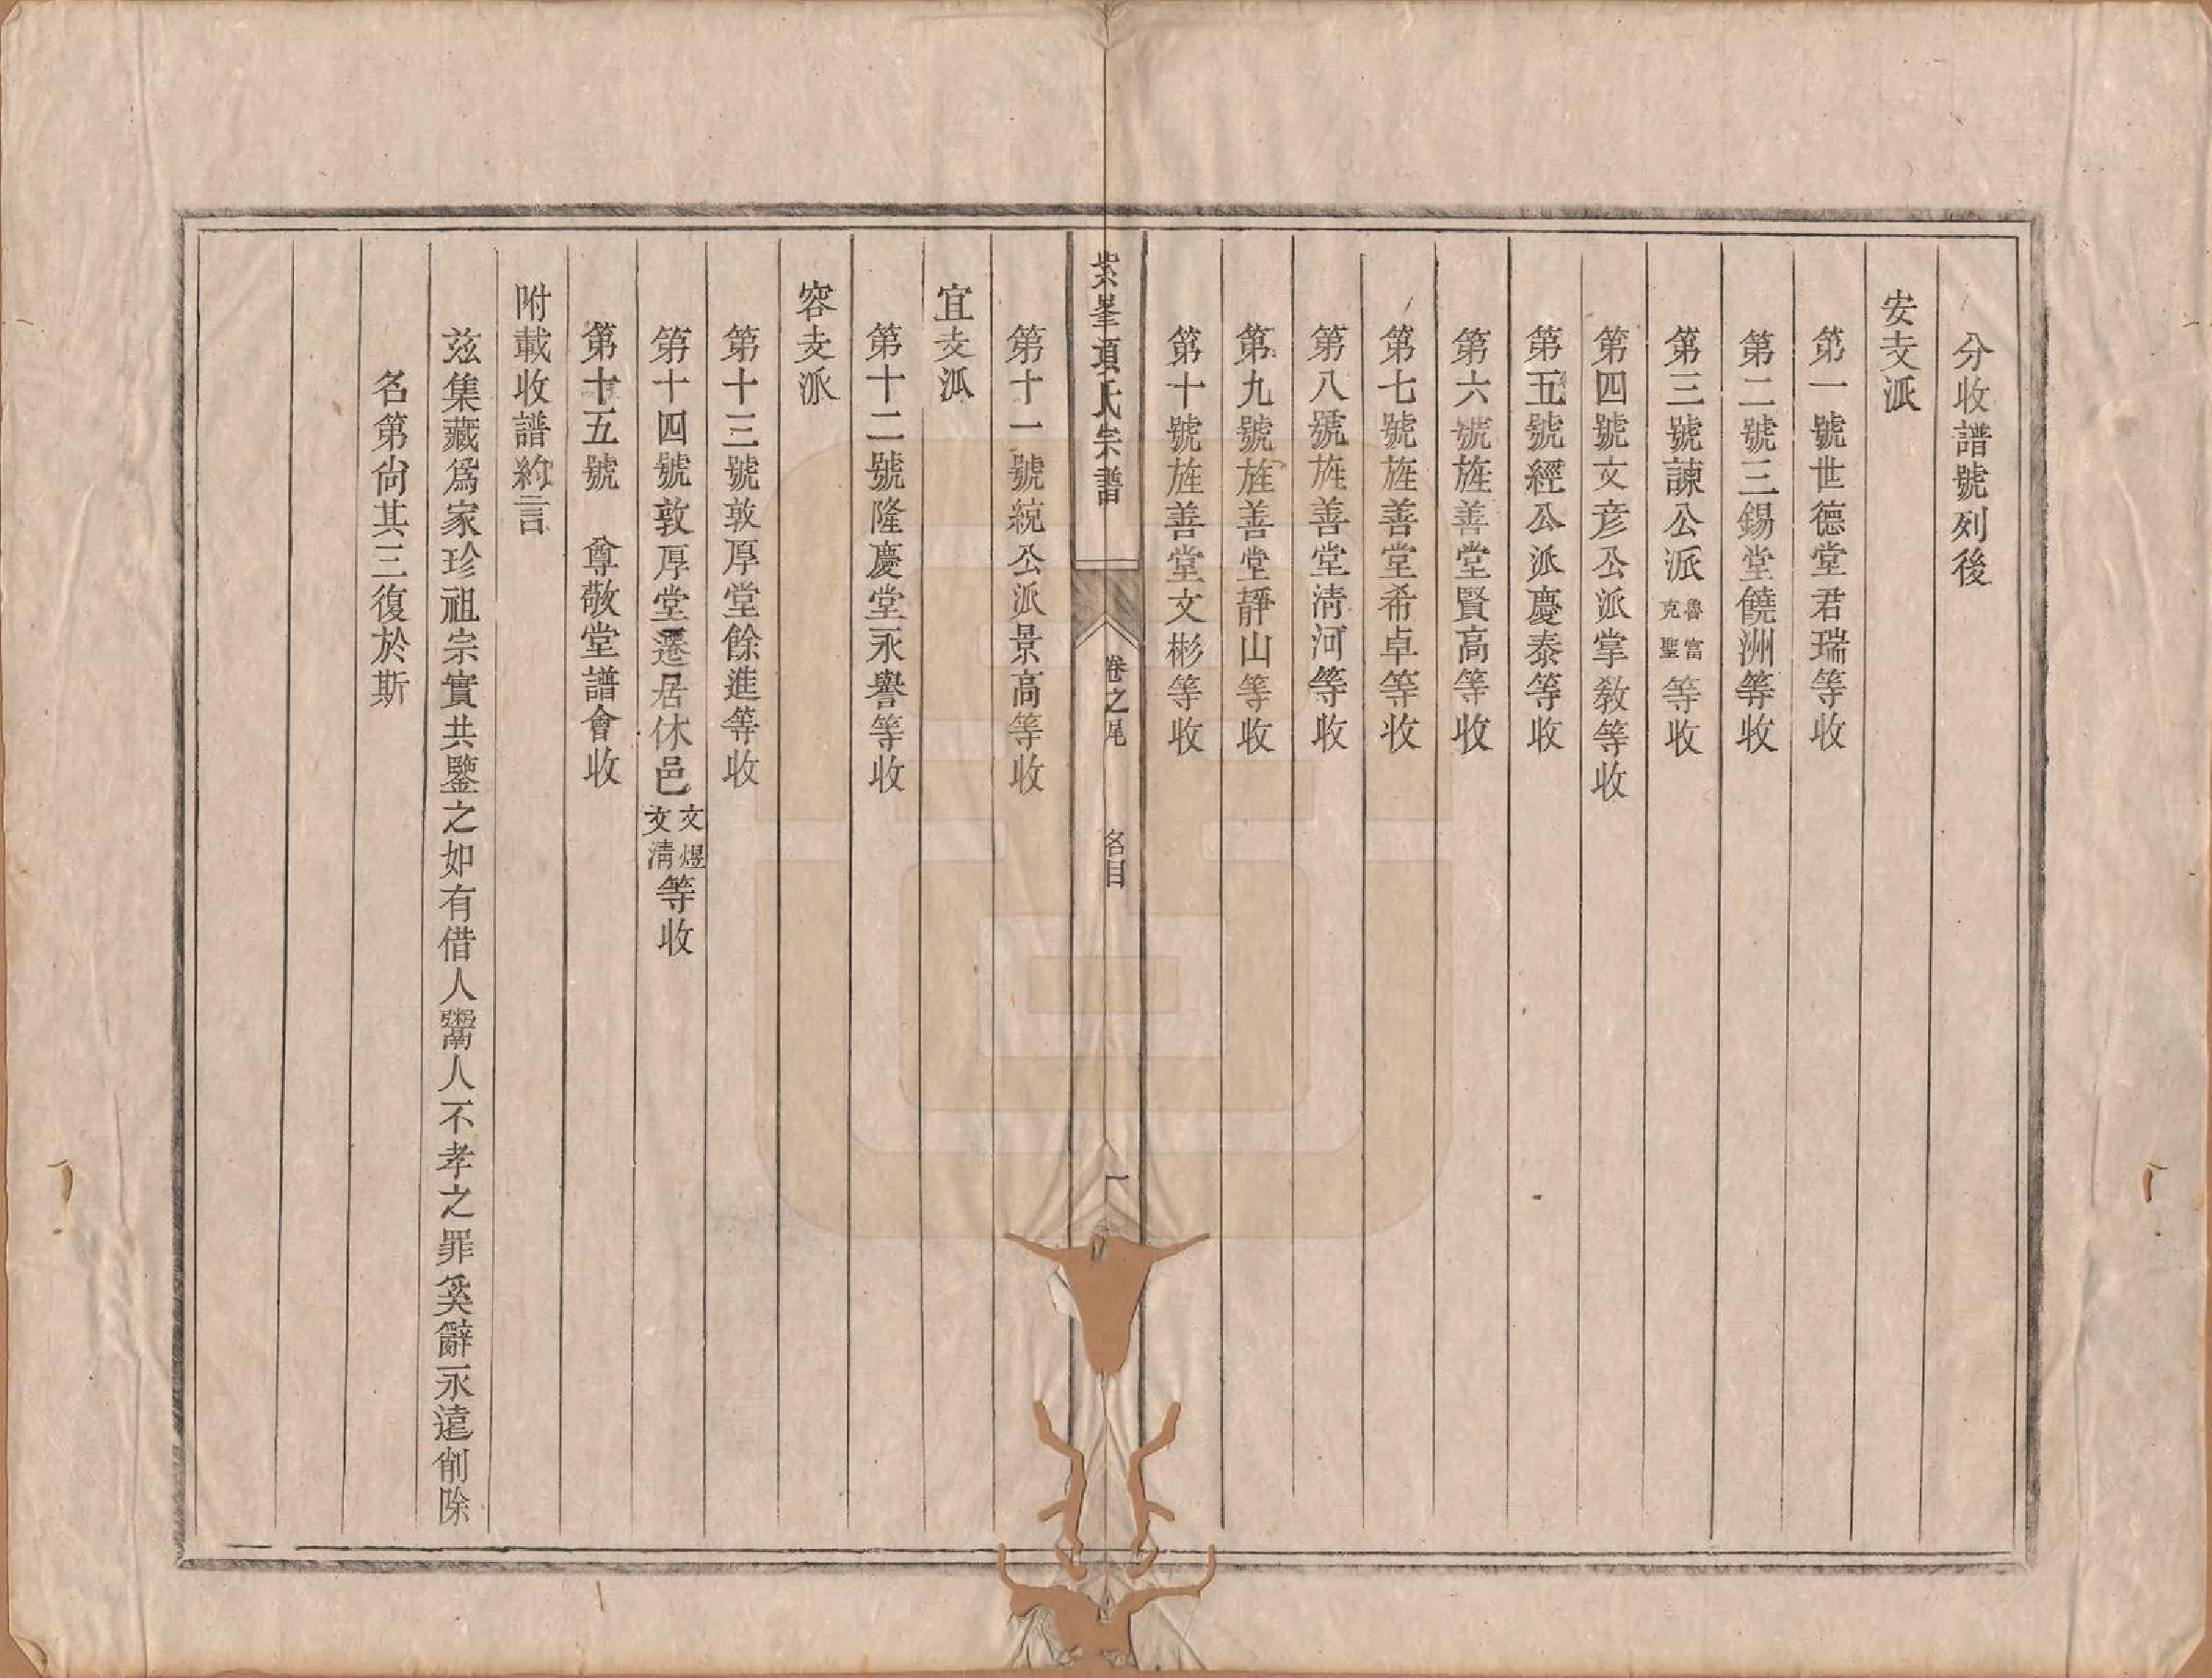 分收譜號列後
安支派
第一號世德堂君瑞等收
第二號三錫堂饒洲等收
第三號諫公派魯富克聖等收
第四號文彦公派掌敎等收
第五號經公派慶泰等收
第六號旌善堂賢高等收
第七號旌善堂希卓等收
第八號旌善堂淸河等收
第九號旌善堂靜山等收
第十號旌善堂文彬等收
紫峯項氏宗譜 卷之尾 名目 一
第十一號統公派景高等收
宜支派
第十二號隆慶堂永譽等收
容支派
第十三號敦厚堂餘進等收
第十四號敦厚堂遷居休邑文煜文淸等收
第十五號 尊敬堂譜會收
附載收譜約言
兹集藏爲家珍祖宗實共鑒之如有借人鬻人不孝之罪奚辭永遠削除
名第尙其三復於斯